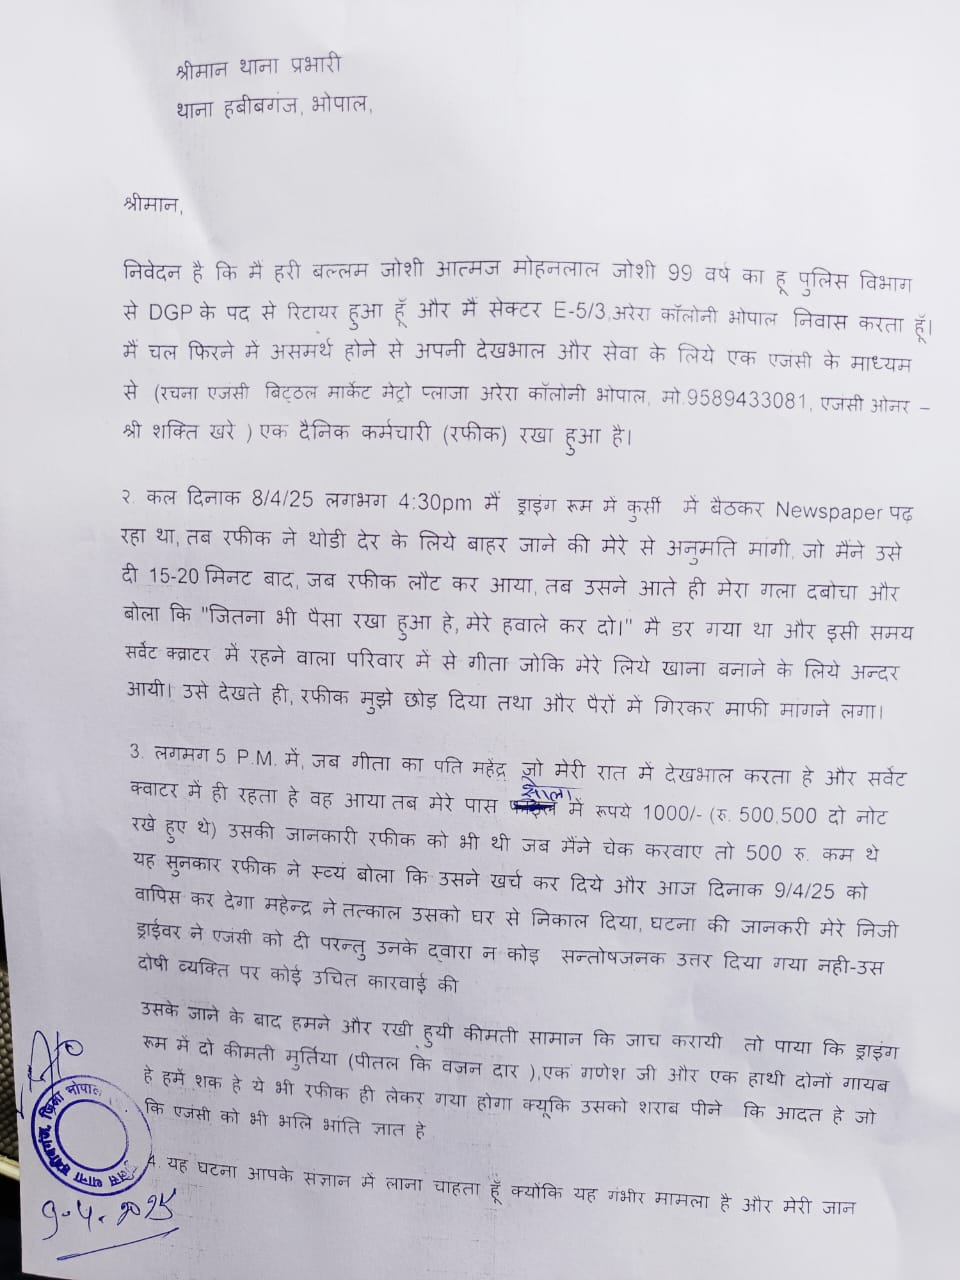 श्रीमान थाना प्रभारी
थाना हबीबगंज, भोपाल,
श्रीमान,
निवेदन है कि मैं हरी बल्लम जोशी आत्मज मोहनलाल जोशी 99 वर्ष का हू पुलिस विभाग
से DGP के पद से रिटायर हुआ हूँ और मैं सेक्टर E-5/3,अरेरा कॉलोनी भोपाल निवास करता हूँ।
मैं चल फिरने में असमर्थ होने से अपनी देखभाल और सेवा के लिये एक एजंसी के माध्यम
से (रचना एजंसी बिट्ठल मार्केट मेट्रो प्लाजा अरेरा कॉलोनी भोपाल, मो.9589433081, एजंसी ओनर –
श्री शक्ति खरे ) एक दैनिक कर्मचारी (रफीक) रखा हुआ है।
२. कल दिनाक 8/4/25 लगभग 4:30pm मैं ड्राइंग रूम में कुर्सी में बैठकर Newspaper पढ़
रहा था, तब रफीक ने थोडी देर के लिये बाहर जाने की मेरे से अनुमति मांगी, जो मैंने उसे
दी 15-20 मिनट बाद, जब रफीक लौट कर आया, तब उसने आते ही मेरा गला दबोचा और
बोला कि "जितना भी पैसा रखा हुआ हे, मेरे हवाले कर दो।" मै डर गया था और इसी समय
सर्वेट क्वाटर में रहने वाला परिवार में से गीता जोकि मेरे लिये खाना बनाने के लिये अन्दर
आयी। उसे देखते ही, रफीक मुझे छोड़ दिया तथा और पैरों में गिरकर माफी मांगने लगा।
3. लगमग 5 P.M. में, जब गीता का पति महेंद्र जो मेरी रात में देखभाल करता हे और सर्वेट
क्वाटर में ही रहता हे वह आया तब मेरे पास झोला में रूपये 1000/- (रु. 500,500 दो नोट
रखे हुए थे) उसकी जानकारी रफीक को भी थी जब मैंने चेक करवाए तो 500 रु. कम थे
यह सुनकार रफीक ने स्व्यं बोला कि उसने खर्च कर दिये और आज दिनाक 9/4/25 को
वापिस कर देगा महेन्द्र ने तत्काल उसको घर से निकाल दिया, घटना की जानकरी मेरे निजी
ड्राईवर ने एजंसी को दी परन्तु उनके द्वारा न कोइ सन्तोषजनक उत्तर दिया गया नही-उस
दोषी व्यक्ति पर कोई उचित कारवाई की
उसके जाने के बाद हमने और रखी हुयी कीमती सामान कि जाच करायी तो पाया कि ड्राइंग
रूम में दो कीमती मुर्तिया (पीतल कि वजन दार ),एक गणेश जी और एक हाथी दोनों गायब
हे हमें शक हे ये भी रफीक ही लेकर गया होगा क्यूकि उसको शराब पीने कि आदत हे जो
कि एजंसी को भी भलि भांति ज्ञात हे
4. यह घटना आपके संज्ञान में लाना चाहता हूँ क्योंकि यह गंभीर मामला है और मेरी जान
पुलिस थाना हबीबगंज, जिला भोपाल
9.4.2025